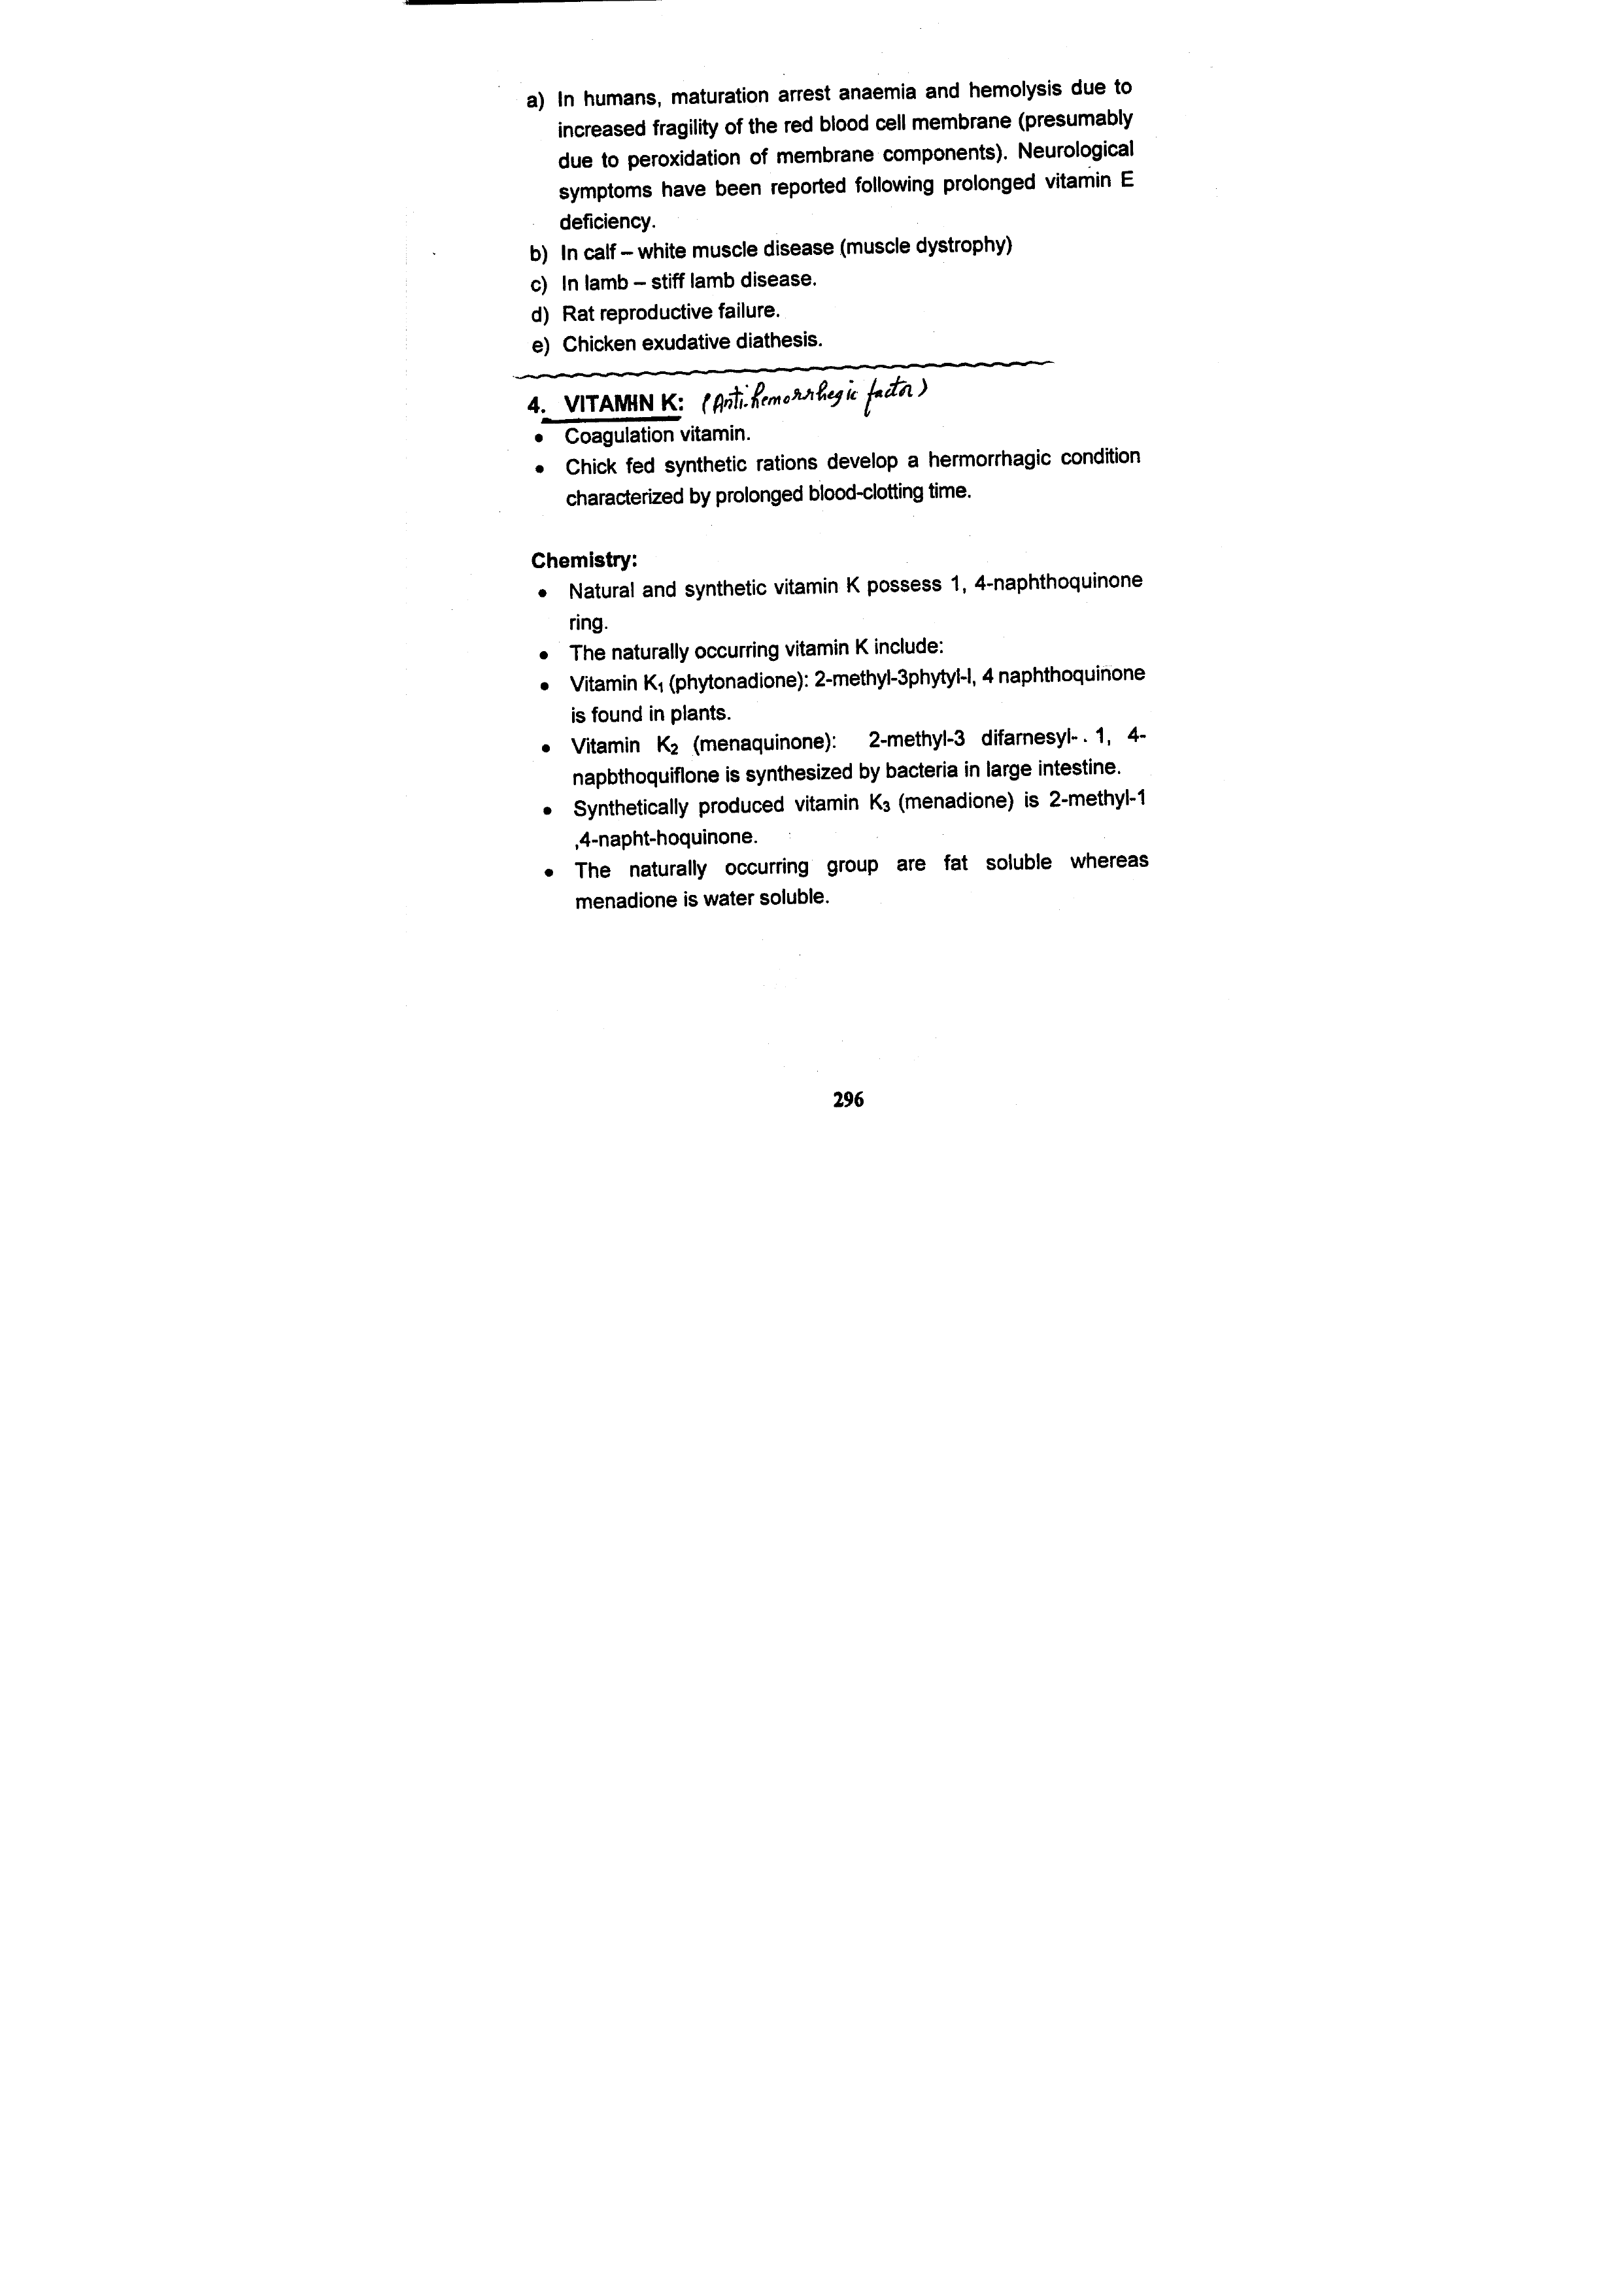 a) In humans, maturation arrest anaemia and hemolysis due to
increased fragility of the red blood cell membrane (presumably
due to peroxidation of membrane components). Neurological
symptoms have been reported following prolonged vitamin E
deficiency.
b) In calf – white muscle disease (muscle dystrophy)
c) In lamb – stiff lamb disease.
d) Rat reproductive failure.
e) Chicken exudative diathesis.
4. VITAMIN K: (Anti-hemorrhegic factor)
• Coagulation vitamin.
• Chick fed synthetic rations develop a hermorrhagic condition
characterized by prolonged blood-clotting time.
Chemistry:
• Natural and synthetic vitamin K possess 1, 4-naphthoquinone
ring.
• The naturally occurring vitamin K include:
• Vitamin K₁ (phytonadione): 2-methyl-3phytyl-l, 4 naphthoquinone
is found in plants.
• Vitamin K₂ (menaquinone): 2-methyl-3 difarnesyl- . 1, 4-
napbthoquiflone is synthesized by bacteria in large intestine.
• Synthetically produced vitamin K₃ (menadione) is 2-methyl-1
,4-napht-hoquinone.
• The naturally occurring group are fat soluble whereas
menadione is water soluble.
296